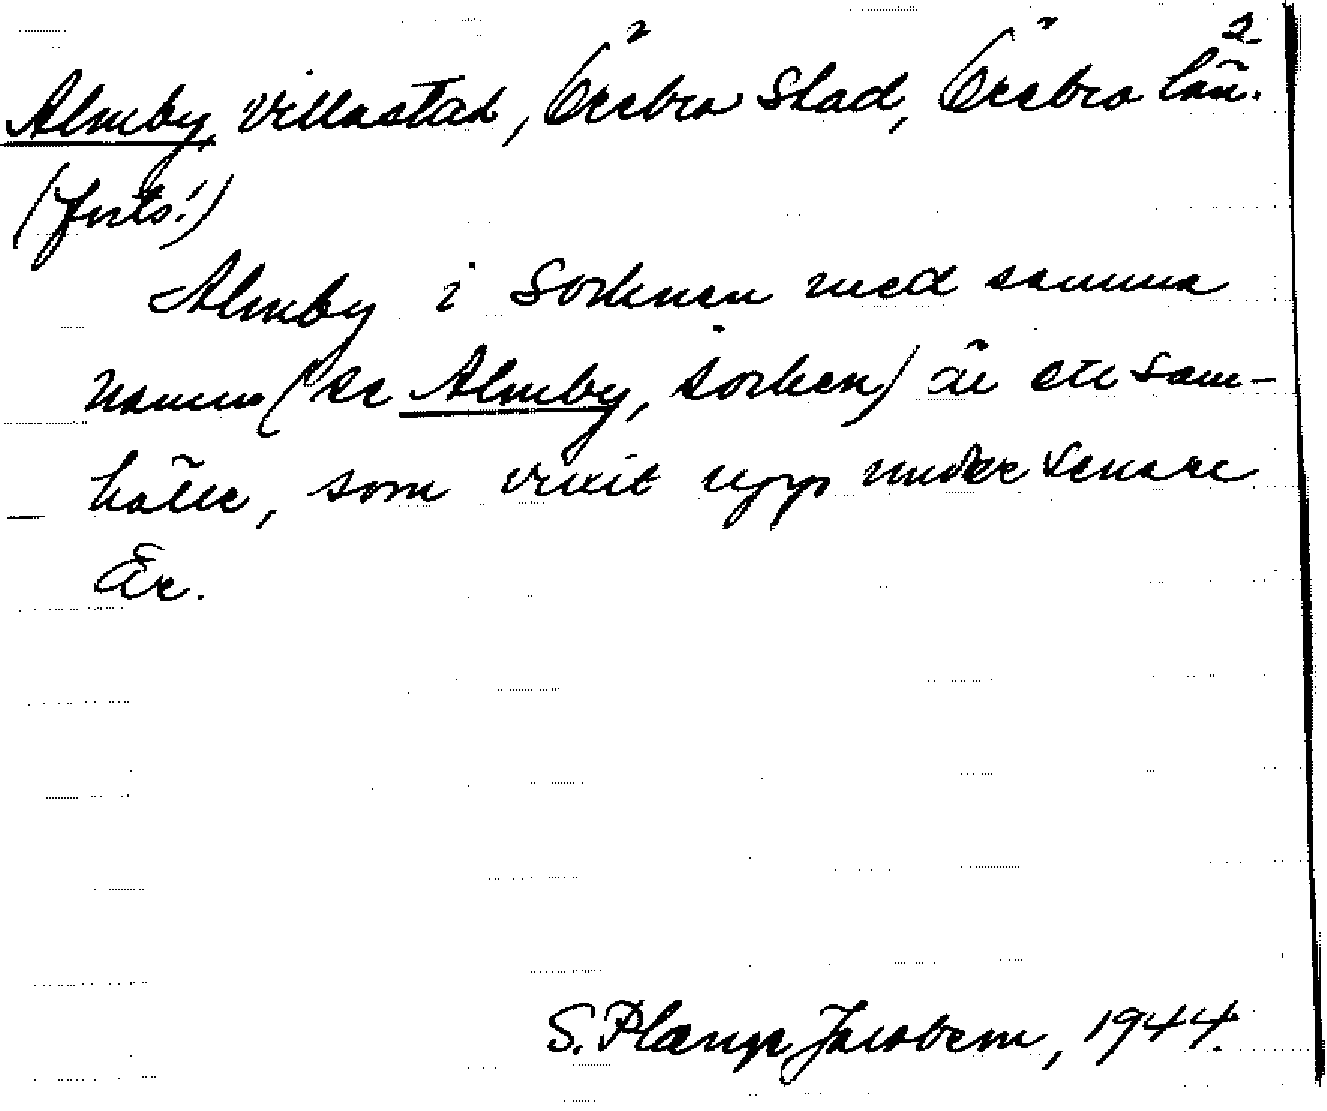 2.
Almby, villastad, Örebro Stad, Örebro län.
(forts.)
Almby i Socknen med samma
namn (se Almby, socken) är ett sam-
hälle, som vuxit upp under senare
år.
S. Jacobson, 1944.